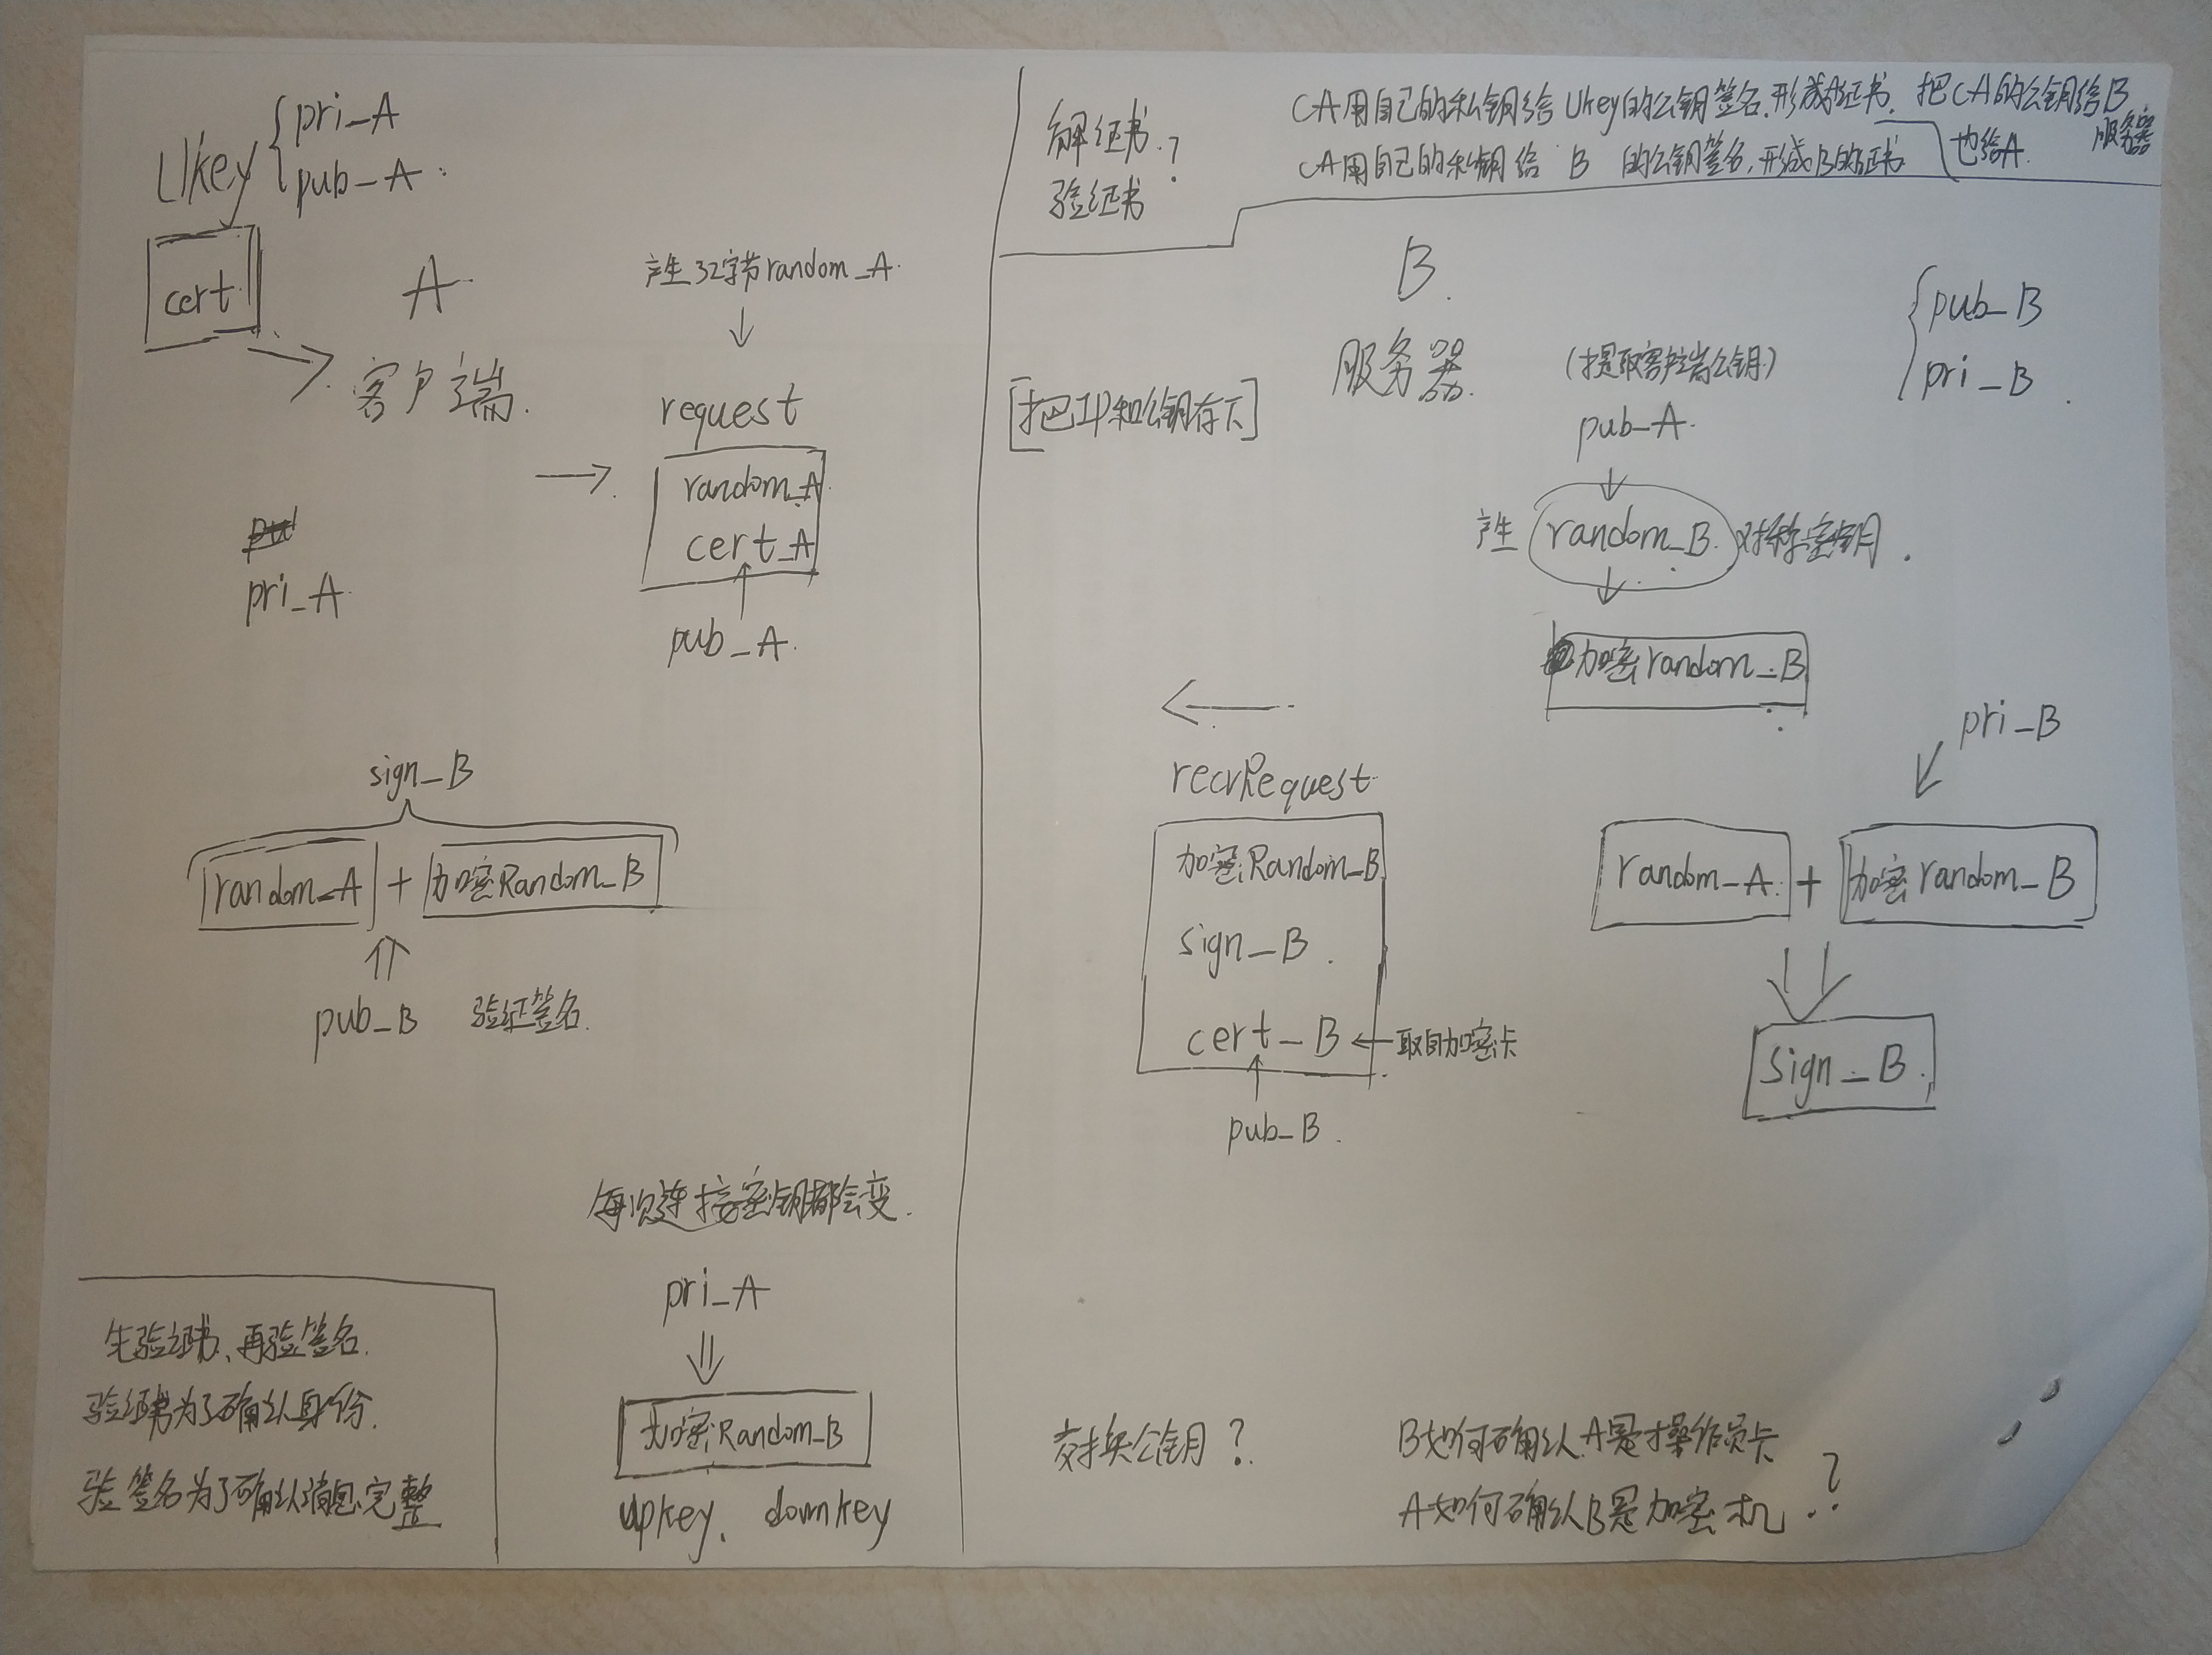 Ukey { pri_A
pub_A
cert
A
客户端.
产生32字节random_A.
↓
→
request
random_A
cert_A
pub_A.
pri_A
sign_B
random_A + 加密Random_B
⇑
pub_B 验证签名.
每次连接密钥都会变.
pri_A
⇓
加密Random_B
upkey, downkey
先验证书、再验签名.
验证书为了确认身份.
验签名为了确认消息完整
解证书?
验证书
CA用自己的私钥给Ukey的公钥签名.形成证书. 把CA的公钥给B
服务器
CA用自己的私钥给 B 的公钥签名,形成B的证书
也给A.
B.
服务器.
{ pub_B
pri_B.
(提取客户端公钥)
pub_A.
产生 random_B. 对称密钥.
加密random_B
pri_B
random_A. + 加密random_B
Sign_B.
←
recvRequest
加密Random_B
sign_B.
cert_B ← 取自加密卡
pub_B.
交换公钥?
B如何确认A是操作员卡
A如何确认B是加密机.?